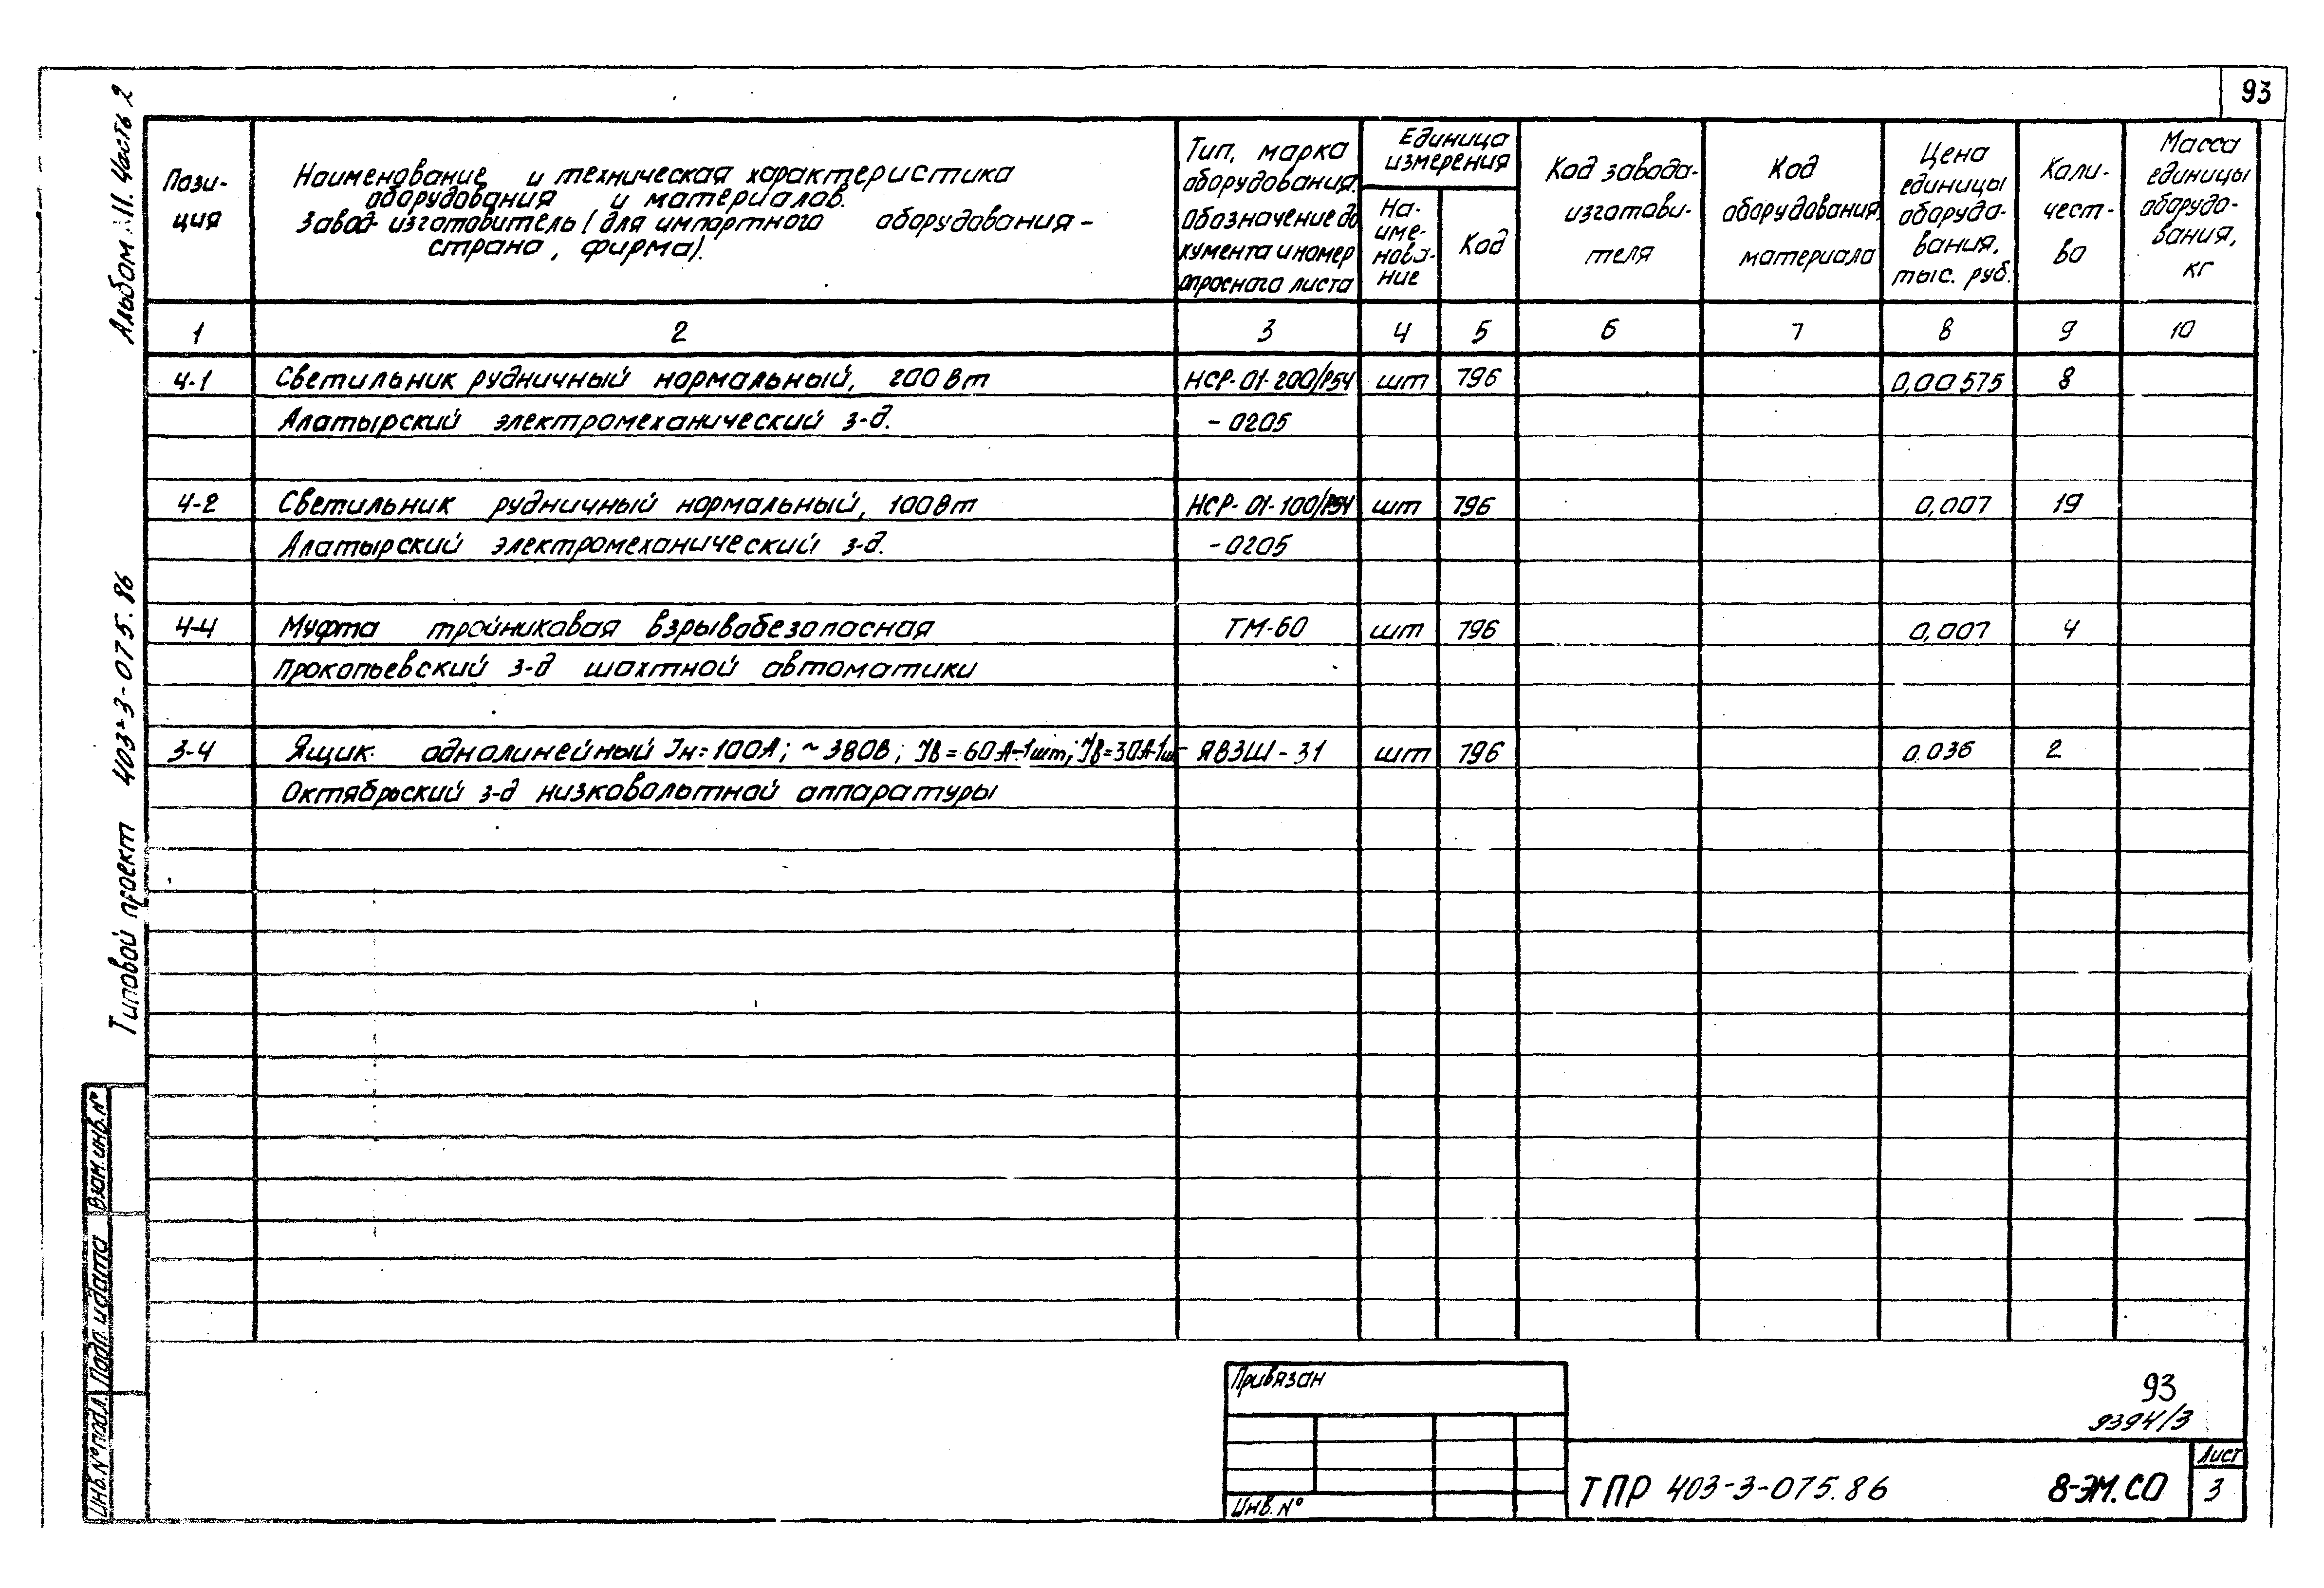 93
Альбом III. Часть 2
Типовой проект 403-3-075.86
Пози-
ция
Наименование и техническая характеристика
оборудования и материалов.
Завод-изготовитель (для импортного оборудования -
страна, фирма).
Тип, марка
оборудования.
Обозначение до
кумента и номер
опросного листа
Единица
измерения
На-
име-
нова-
ние
Код
Код завода-
изготови-
теля
Код
оборудования,
материала
Цена
единицы
оборудо-
вания,
тыс. руб.
Коли-
чест-
во
Масса
единицы
оборудо-
вания,
кг
1 2 3 4 5 6 7 8 9 10
4-1 Светильник рудничный нормальный, 200 Вт НСР-01-200/Р54 шт 796 0,00575 8
Алатырский электромеханический з-д. -0205
4-2 Светильник рудничный нормальный, 100 Вт НСР-01-100/Р54 шт 796 0,007 19
Алатырский электромеханический з-д. -0205
4-4 Муфта тройниковая взрывобезопасная ТМ-60 шт 796 0,007 4
Прокопьевский з-д шахтной автоматики
3-4 Ящик однолинейный Iн=100А; ~380В; Iв=60А-1шт; Iв=30А-1шт ЯВЗШ-31 шт 796 0.036 2
Октябрьский з-д низковольтной аппаратуры
Взам. инв. №
Подп. и дата
Инв. № подл.
Привязан
Инв. №
93
9394/3
ТПР 403-3-075.86 8-ЭМ.СО
Лист
3